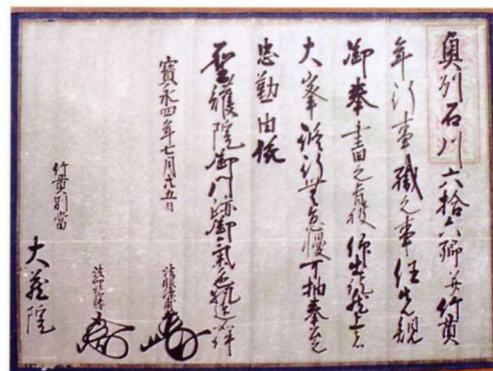 奥州石川六拾六郷并竹貫
年行事職之事任先規
御奉書之旨被仰出訖
大峯修行無怠慢可抽奉公之
忠勤由依
聖護院御門跡御氣色執達如件
寳永四年七月廿五日
法眼
法印
竹貫別當
大蔵院